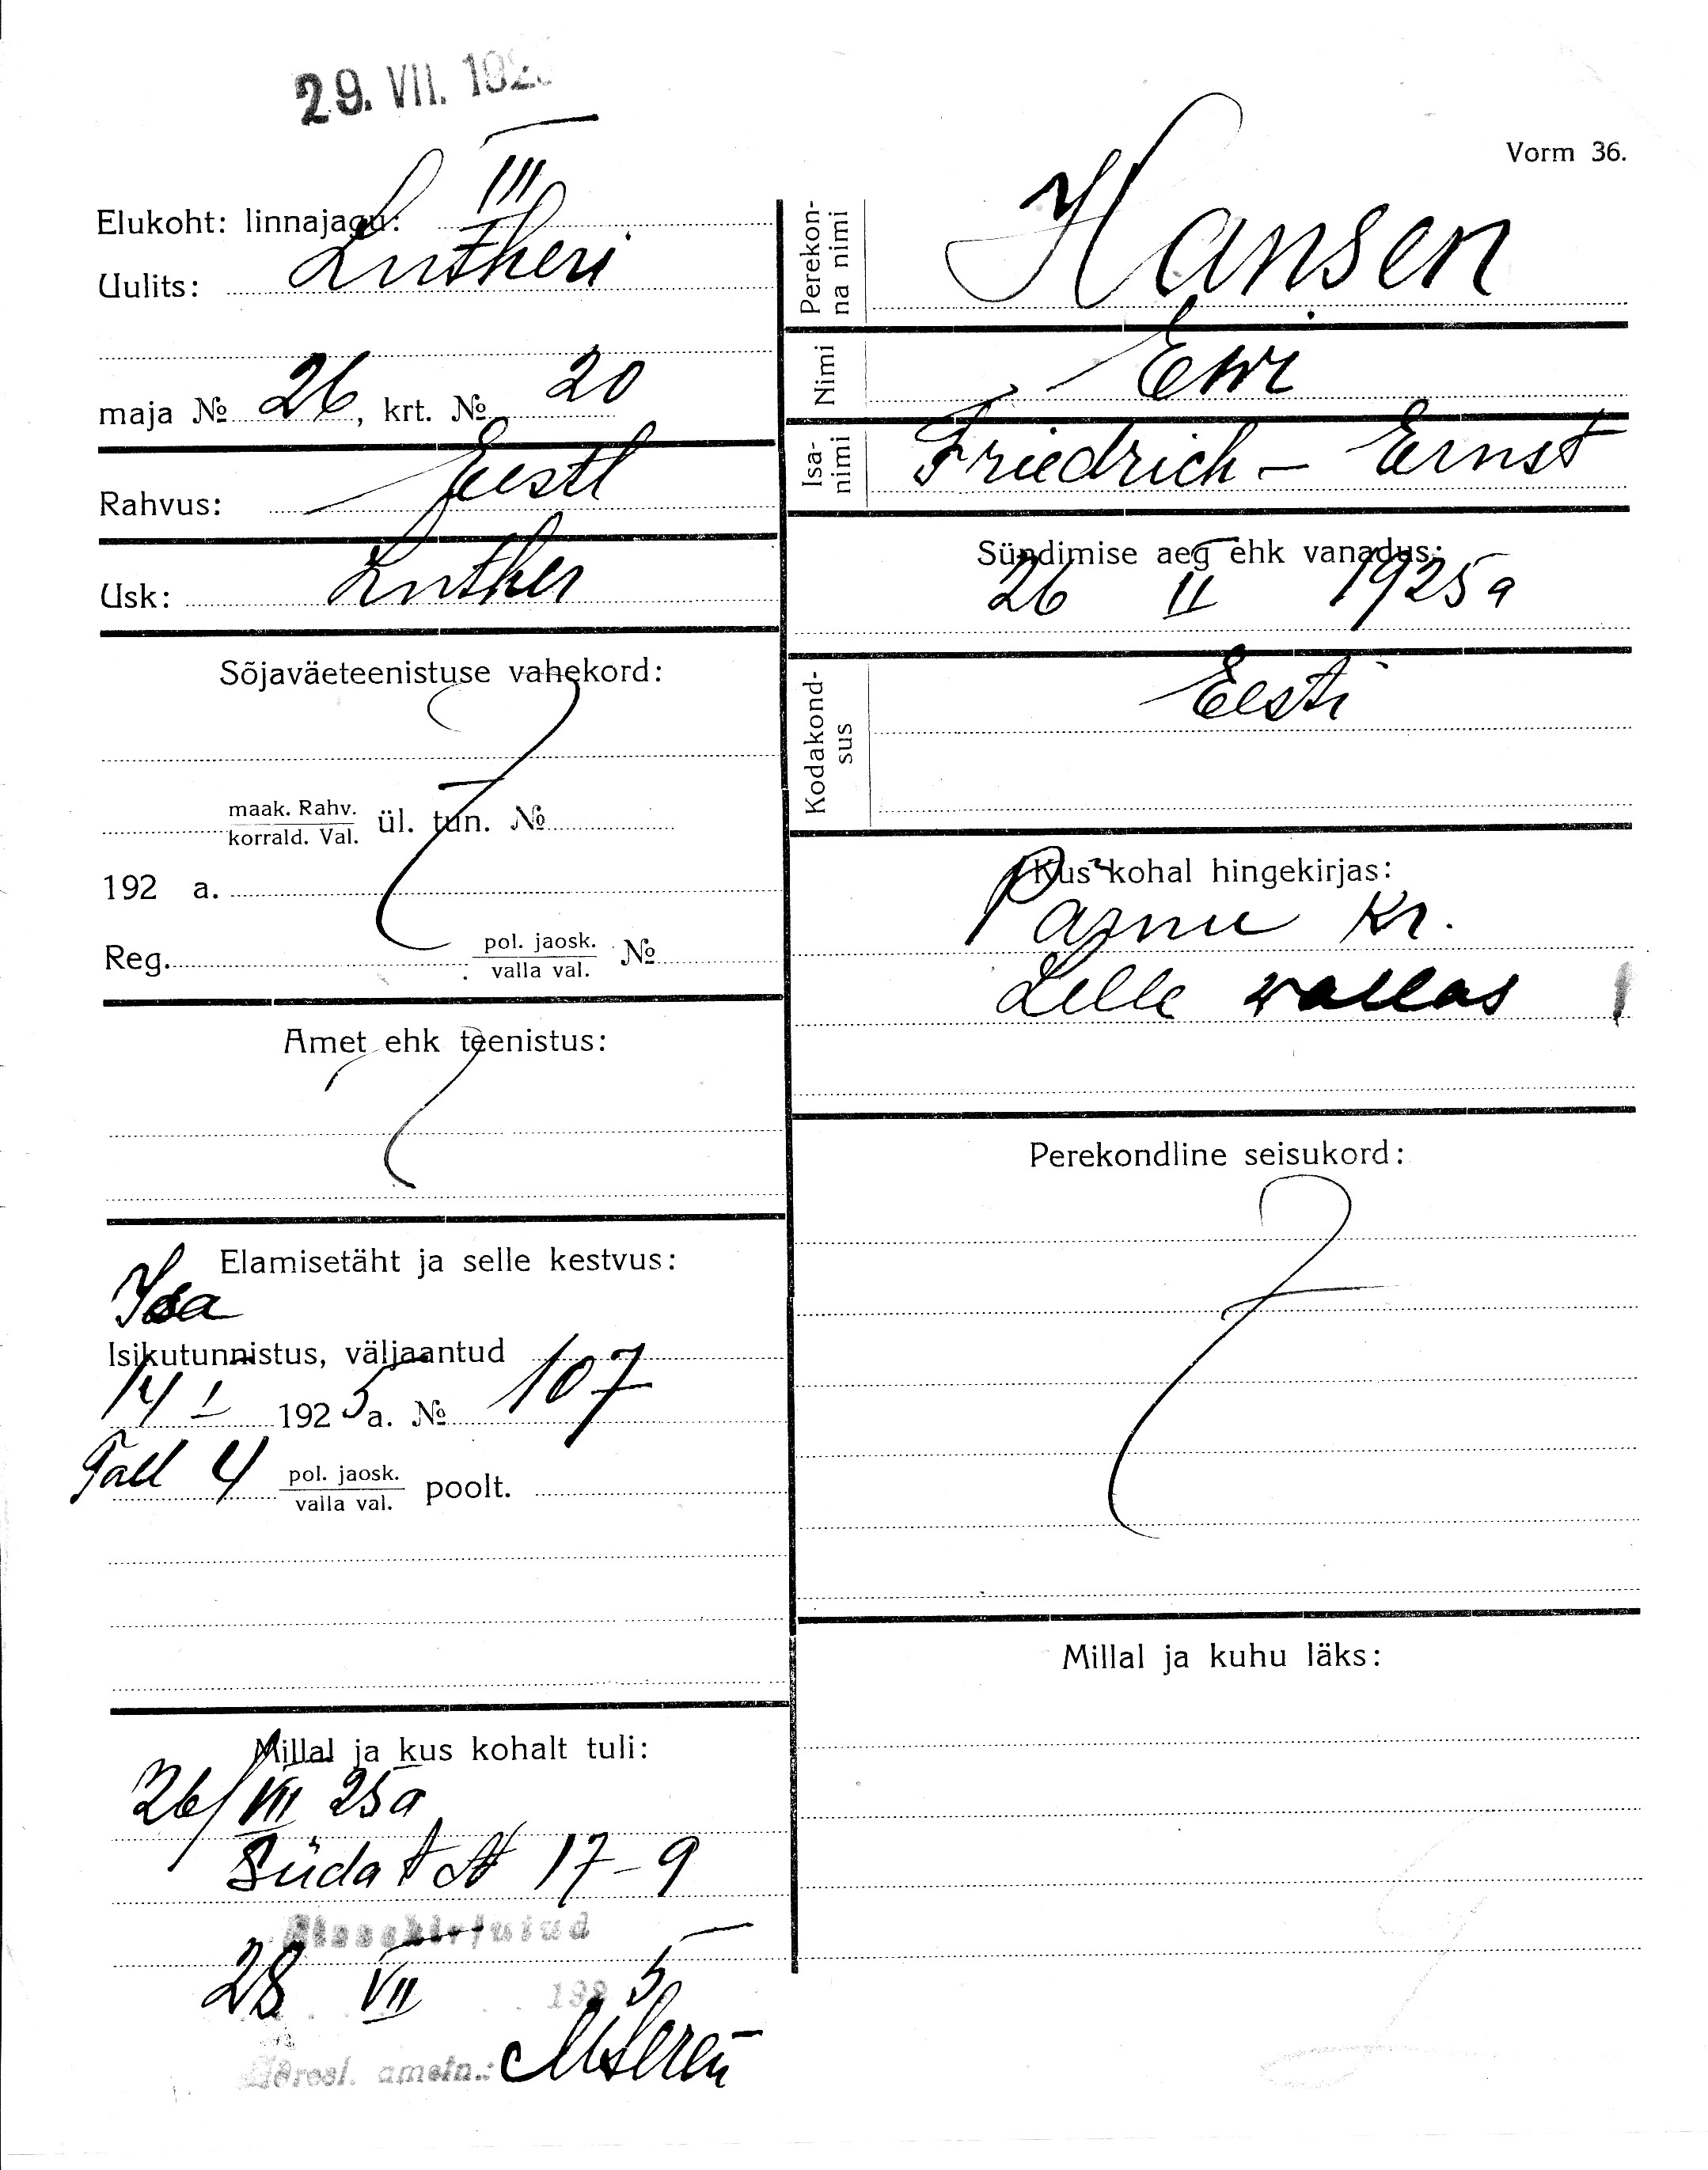 29. VII. 192
Vorm 36.
Elukoht: linnajagu: III
Uulits: Lutheri
maja № 26, krt. № 20
Rahvus: Eesti
Usk: Luther
Sõjaväeteenistuse vahekord:
maak. Rahv.
korrald. Val. ül. tun. №
192 a.
Reg. pol. jaosk. №
valla val.
Amet ehk teenistus:
Elamisetäht ja selle kestvus:
Isa
Isikutunnistus, väljaantud
14 I 1925 a. № 107
Tall 4 pol. jaosk. poolt.
valla val.
Millal ja kus kohalt tuli:
26/VII 25 a
Süda t № 17-9
Sissekirjutud
28 VII 1925
Adresl. ametn.:
Perekon-
na nimi Hansen
Nimi Ewi
Isa-
nimi Friedrich - Ernst
Sündimise aeg ehk vanadus:
26 II 1925 a
Kodakond-
sus Eesti
Kus kohal hingekirjas:
Pärnu Kr.
Lelle wallas
Perekondline seisukord:
Millal ja kuhu läks: